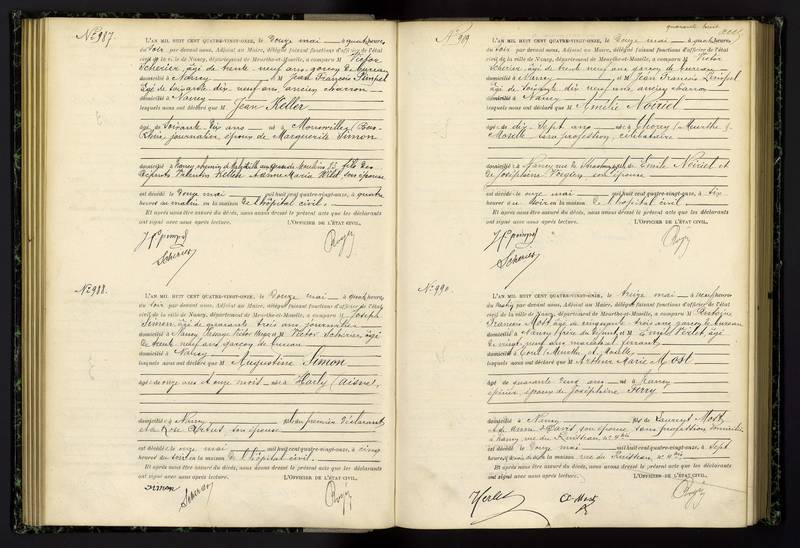 N° 987
L'AN MIL HUIT CENT QUATRE-VINGT-ONZE, le Douze mai à quatre heures
du soir par devant nous, Adjoint au Maire, délégué faisant fonctions d'officier de l'état
civil de la ville de Nancy, département de Meurthe-et-Moselle, a comparu M Victor
Scherier, âgé de trente neuf ans, garçon de bureau
domicilié à Nancy et M Jean François
âgé de soixante dix neuf ans, ancien charron
domicilié à Nancy
lesquels nous ont déclaré que M Jean Keller
âgé de soixante dix ans né à (Bas-
Rhin) journalier, époux de Marguerite Simon
domicilié à Nancy 13, fils des
défunts Valentin Keller et Anne Marie son épouse
est décédé le Douze mai mil huit cent quatre-vingt-onze, à quatre
heures du matin en la maison de l'hôpital civil.
Et après nous être assuré du décès, nous avons dressé le présent acte que les déclarants
ont signé avec nous après lecture. L'OFFICIER DE L'ÉTAT CIVIL,
Scherier
N° 988.
L'AN MIL HUIT CENT QUATRE-VINGT-ONZE, le Douze mai à quatre heures
du soir par devant nous, Adjoint au Maire, délégué faisant fonctions d'officier de l'état
civil de la ville de Nancy, département de Meurthe-et-Moselle, a comparu M Joseph
Simon, âgé de quarante trois ans, journalier
domicilié à Nancy et M Victor Scherier, âgé
de trente neuf ans garçon de bureau
domicilié à Nancy
lesquels nous ont déclaré que M Augustine Simon
âgé de onze ans et onze mois né à Harly (Aisne)
domicilié à Nancy fille du premier déclarant
et de Rose son épouse
est décédé le onze mai mil huit cent quatre-vingt-onze, à cinq
heures du soir en la maison de l'hôpital civil.
Et après nous être assuré du décès, nous avons dressé le présent acte que les déclarants
ont signé avec nous après lecture. L'OFFICIER DE L'ÉTAT CIVIL,
Simon
Scherier
quarante huit
N° 989
L'AN MIL HUIT CENT QUATRE-VINGT-ONZE, le Douze mai à quatre heures
du soir par devant nous, Adjoint au Maire, délégué faisant fonctions d'officier de l'état
civil de la ville de Nancy, département de Meurthe-et-Moselle, a comparu M Victor
Scherier, âgé de trente neuf ans garçon de bureau
domicilié à Nancy et M Jean François
âgé de soixante dix neuf ans, ancien charron
domicilié à Nancy
lesquels nous ont déclaré que M Amélie Noiriel
âgé de dix-sept ans née à Thorey (Meurthe &
Moselle) sans profession, célibataire
domicilié à Nancy rue de Strasbourg fille de Emile Noiriel et
de Joséphine son épouse
est décédé le onze mai mil huit cent quatre-vingt-onze, à six
heures du soir en la maison de l'hôpital civil.
Et après nous être assuré du décès, nous avons dressé le présent acte que les déclarants
ont signé avec nous après lecture. L'OFFICIER DE L'ÉTAT CIVIL,
Scherier
N° 990.
L'AN MIL HUIT CENT QUATRE-VINGT-ONZE, le treize mai à neuf heures
du matin par devant nous, Adjoint au Maire, délégué faisant fonctions d'officier de l'état
civil de la ville de Nancy, département de Meurthe-et-Moselle, a comparu M Antoine
François Most, âgé de cinquante trois ans garçon de bureau
domicilié à Nancy frère du défunt et M âgé
de vingt neuf ans maréchal ferrant
domicilié à Toul (Meurthe et Moselle)
lesquels nous ont déclaré que M Arthur Marie Most
âgé de quarante cinq ans né à Nancy
époux de Joséphine Ferry
domicilié à Nancy fils de Laurent Most
et de son épouse, sans profession domiciliée
à Nancy rue du Ruisseau n° 4 bis
est décédé le Douze mai mil huit cent quatre-vingt-onze, à sept
heures du soir en la maison rue du Ruisseau, n° 4 bis
Et après nous être assuré du décès, nous avons dressé le présent acte que les déclarants
ont signé avec nous après lecture. L'OFFICIER DE L'ÉTAT CIVIL,
Most